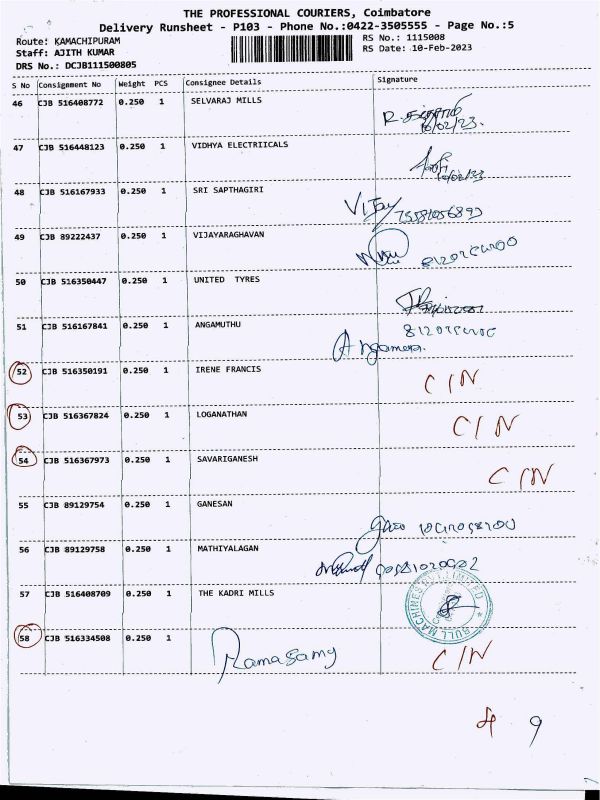 THE PROFESSIONAL COURIERS, Coimbatore
Delivery Runsheet - P103 - Phone No.:0422-3505555 - Page No.:5
Route: KAMACHIPURAM RS No.: 1115008
Staff: AJITH KUMAR RS Date: 10-Feb-2023
DRS No.: DCJB111500805
S No Consignment No Weight PCS Consignee Details Signature
46 CJB 516408772 0.250 1 SELVARAJ MILLS
10/02/23.
47 CJB 516448123 0.250 1 VIDHYA ELECTRIICALS
10/02/23
48 CJB 516167933 0.250 1 SRI SAPTHAGIRI
Vijay
49 CJB 89222437 0.250 1 VIJAYARAGHAVAN
50 CJB 516350447 0.250 1 UNITED TYRES
51 CJB 516167841 0.250 1 ANGAMUTHU
52 CJB 516350191 0.250 1 IRENE FRANCIS C/N
53 CJB 516367824 0.250 1 LOGANATHAN C/N
54 CJB 516367973 0.250 1 SAVARIGANESH C/N
55 CJB 89129754 0.250 1 GANESAN
56 CJB 89129758 0.250 1 MATHIYALAGAN
57 CJB 516408709 0.250 1 THE KADRI MILLS
BULL MACHINES PVT. LIMITED
58 CJB 516334508 0.250 1 Ramasamy C/N
4 9